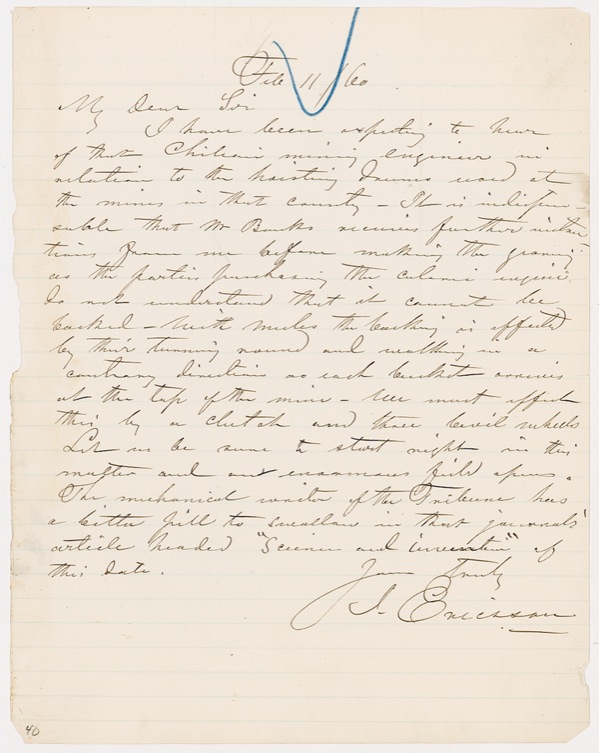 Feb 11/60
My Dear Sir
I have been expecting to hear
of that Chilean mining engineer in
relation to the hoisting drums used at
the mines in that country - It is indispen-
sable that Mr Banks receives further instruc
tions from me before making the gearing
as the parties purchasing the caloric engine
do not understand that it cannot be
backed - With mules the backing is effected
by their turning round and walking in a
contrary direction as each bucket arrives
at the top of the mine - We must effect
this by a clutch and three bevil wheels
Let us be sure to start right in this
matter and an enormous field opens.
The mechanical writer of the Tribune has
a bitter pill to swallow in that journals
article headed "Science and invention" of
this date.
Yours Truly
J. Ericsson
40